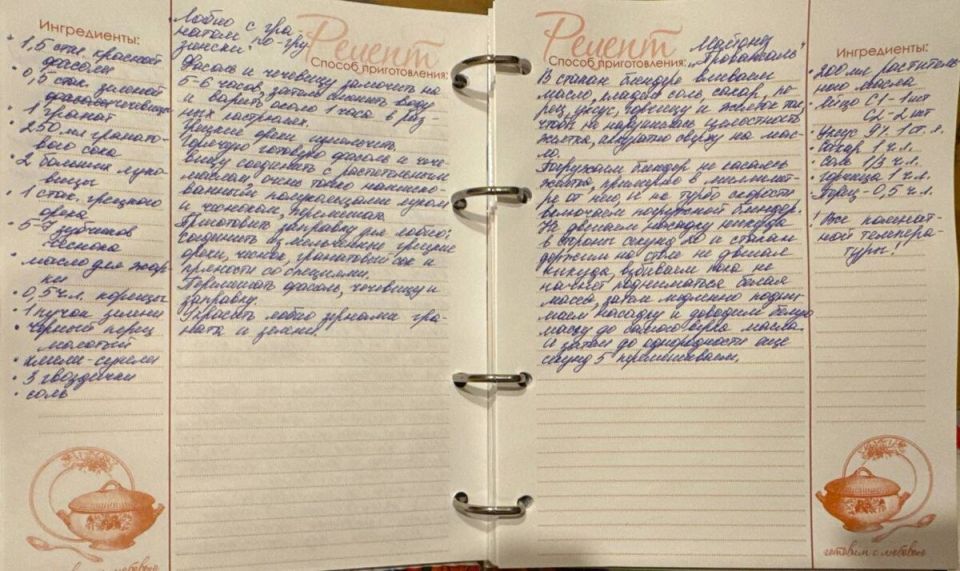 Ингредиенты:
• 1,5 стак. красной
фасоли
• 0,5 стак. зеленой
чечевицы
• 1 гранат
• 250 мл гранато-
вого сока
• 2 больших луко-
вицы
• 1 стак. грецкого
ореха
• 5-7 зубчиков
чеснока
• масло для жар-
ки
• 0,5 ч.л. корицы
• 1 пучок зелени
• черный перец
молотый
• хмели-сунели
• 3 гвоздички
• соль
Лобио с гра-
натом по-гру-
зински.
Рецепт
Способ приготовления:
Фасоль и чечевицу замочить на
5-6 часов, затем сменить воду
и варить около 1 часа в раз-
ных кастрюлях.
Грецкие орехи измельчить.
Горячую готовую фасоль и чече-
вицу соединить с растопленным
маслом, очень тонко нашинко-
ванным полукольцами луком
и чесноком, перемешать.
Приготовить заправку для лобио:
соединить измельченные грецкие
орехи, чеснок, гранатовый сок и
пряности со специями.
Перемешать фасоль, чечевицу и
заправку.
Украсить лобио зернами гра-
ната и зелени.
готовим с любовью
Рецепт
Майонез
"Провансаль"
Способ приготовления:
В стакан блендера вливаем
масло, кладем соль, сахар, пе-
рец, уксус, горчицу и желток так,
чтобы не нарушилась целостность
желтка, аккуратно сверху на мас-
ло.
Погружаем блендер не касаясь
желтка, примерно в миллимет-
ре от него, и на турбо скорости
включаем погружной блендер.
Не двигаем насадку никуда
в стороны секунд 10 и стакан
держим на столе не двигая
никуда, взбиваем пока не
начнёт подниматься белая
масса, затем медленно подни-
маем насадку и доводим белую
массу до самого верха масла.
И затем до однородности еще
секунд 5 перемешиваем.
Ингредиенты:
• 200 мл раститель-
ного масла
• яйцо С1 - 1 шт
С2 - 2 шт
• Уксус 9% 1 ст.л.
• Сахар 1 ч.л.
• Соль 1/3 ч.л.
• горчица 1 ч.л.
• Перец - 0,5 ч.л.
! Все комнат-
ной темпера-
туры!
готовим с любовью